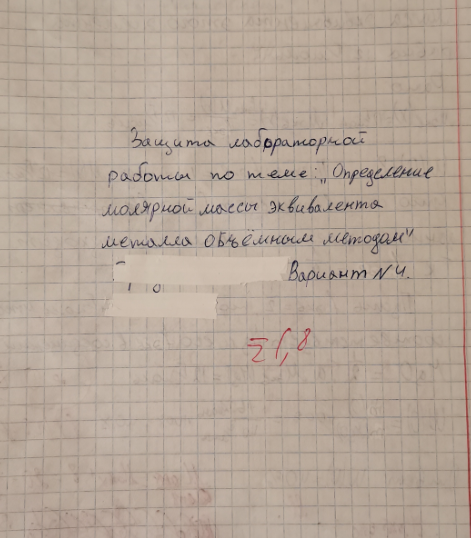 Защита лабораторной
работы по теме: „Определение
молярной массы эквивалента
металла объёмным методом"
Вариант №4.
Σ 1,8